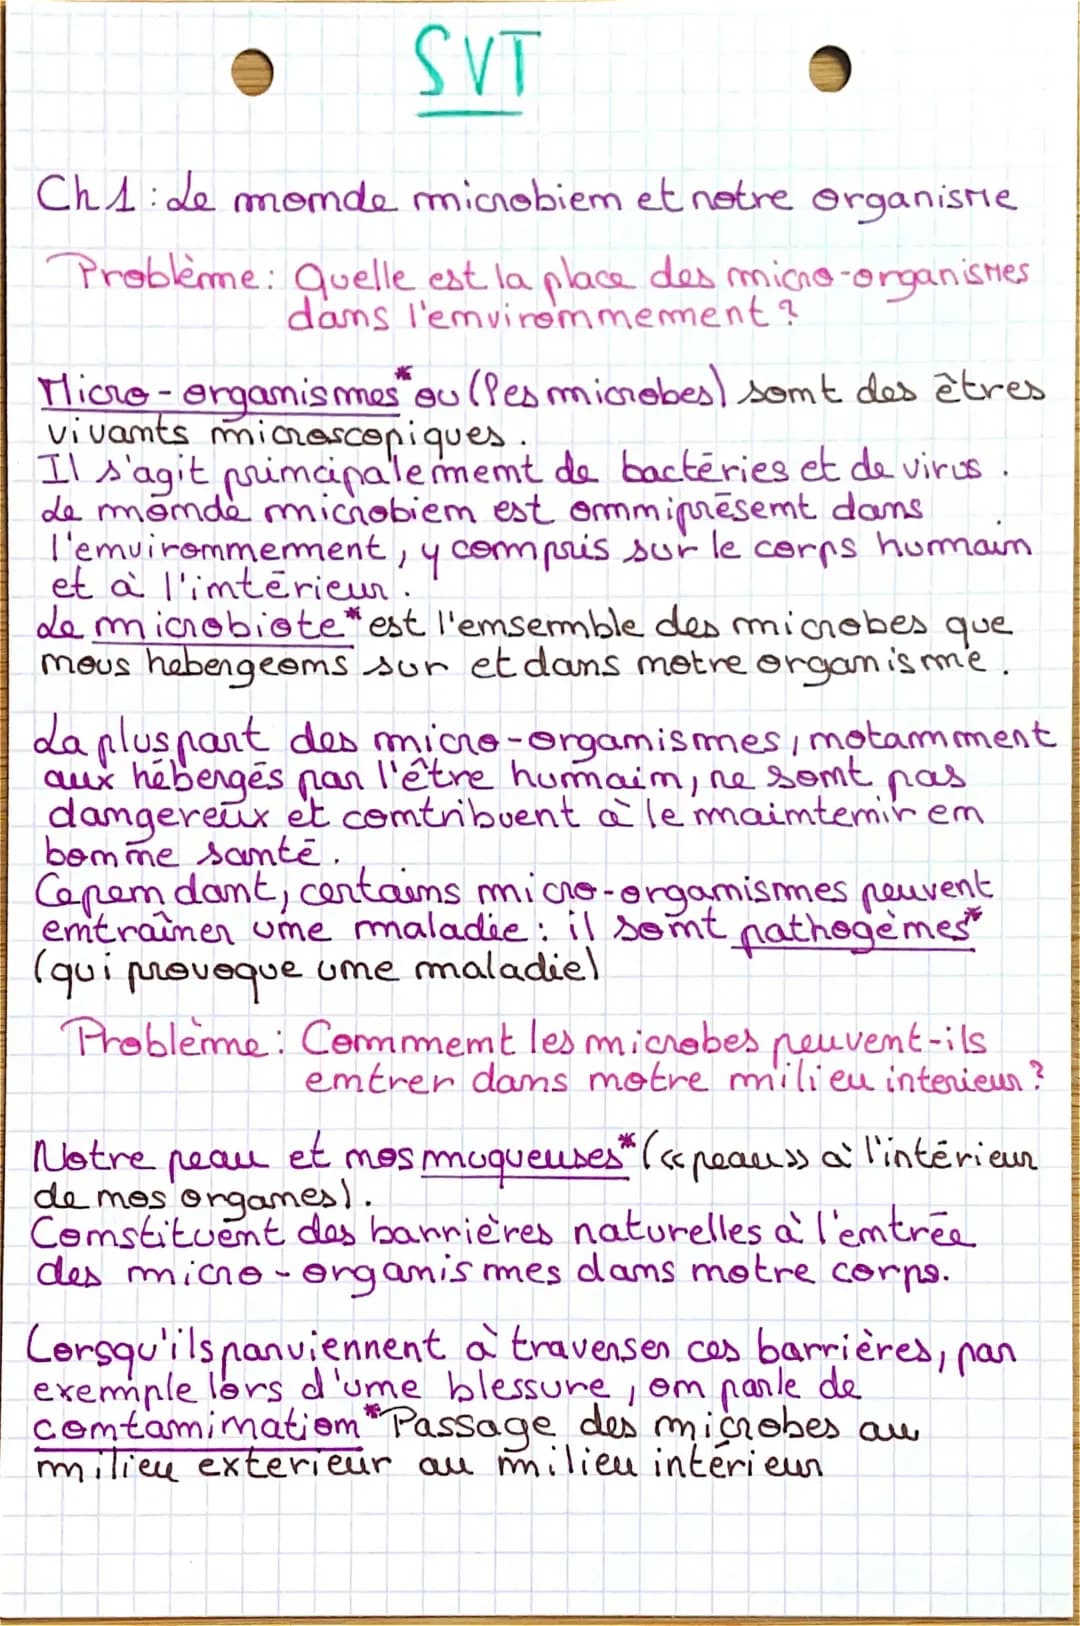 SVT
Ch1 : Le monde microbien et notre organisme
Problème : Quelle est la place des micro-organismes
dans l'environnement ?
Micro-organismes* ou (les microbes) sont des êtres
vivants microscopiques.
Il s'agit principalement de bactéries et de virus.
Le monde microbien est omniprésent dans
l'environnement, y compris sur le corps humain
et à l'intérieur.
Le microbiote* est l'ensemble des microbes que
nous hebergeons sur et dans notre organisme.
La pluspart des micro-organismes, notamment
aux hébergés par l'être humain, ne sont pas
dangereux et contribuent à le maintenir en
bonne santé.
Cependant, certains micro-organismes peuvent
entraîner une maladie : il sont pathogènes*
(qui provoque une maladie)
Problème : Comment les microbes peuvent-ils
entrer dans notre milieu interieur ?
Notre peau et nos muqueuses* (<<peau>> à l'intérieur
de nos organes).
Constituent des barrières naturelles à l'entrée
des micro-organismes dans notre corps.
Lorsqu'ils parviennent à traverser ces barrières, par
exemple lors d'une blessure, on parle de
contamination* Passage des microbes au
milieu exterieur au milieu intérieur